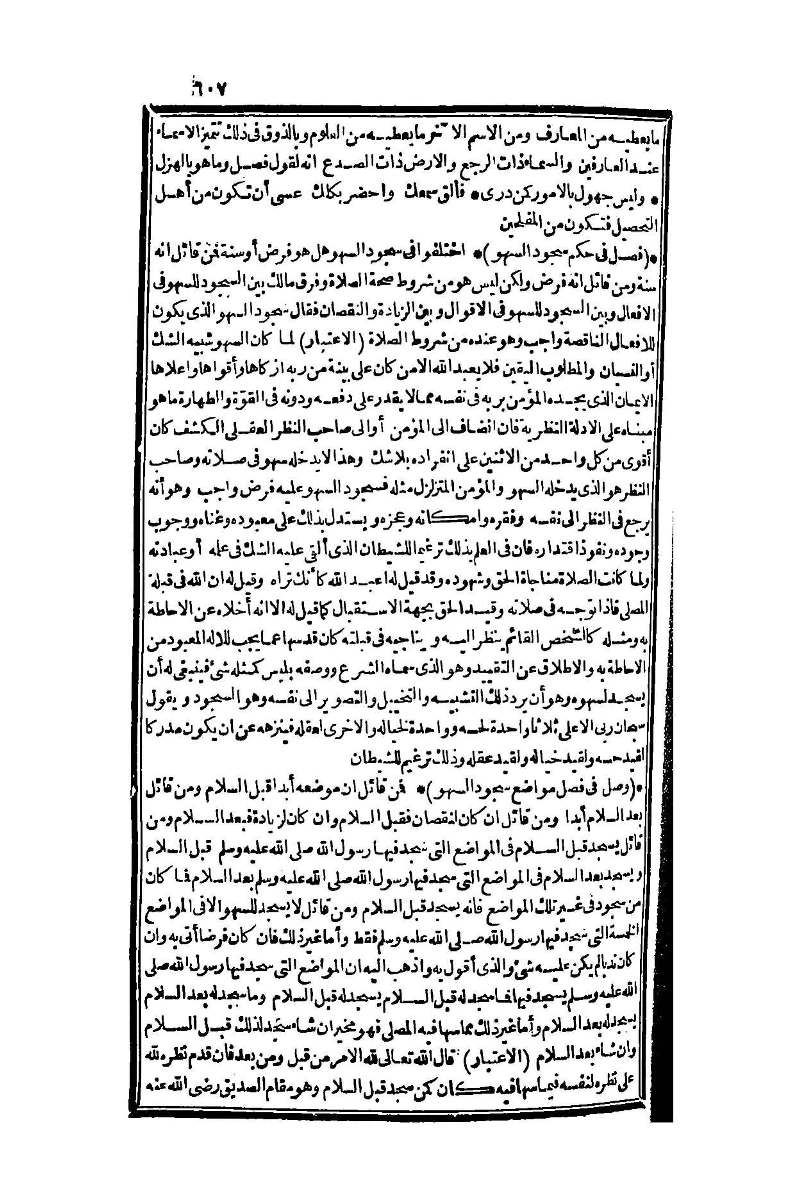 ٦٠٧
ما يعطيه من المعارف ومن الاسم الآخر ما يعطيه من العلوم وبالذوق فى ذلك تتميز الاسماء
عند العارفين والسماء ذات الرجع والارض ذات الصدع انه لقول فصل وما هو بالهزل
* وليس جهول بالامور كمن درى * فألق سمعك واحضر بكلك عسى أن تكون من أهل
التحصيل فتكون من المفلحين
*(فصل فى حكم سجود السهو)* اختلفوا فى سجود السهو هل هو فرض أو سنة فمن قائل انه
سنة ومن قائل انه فرض ولكن ليس هو من شروط صحة الصلاة وفرق مالك بين السجود للسهو فى
الافعال وبين السجود للسهو فى الاقوال وبين الزيادة والنقصان فقال سجود السهو الذى يكون
للافعال الناقصة واجب وهو عنده من شروط الصلاة (الاعتبار) لما كان السهو شبيه الشك
أو النسيان والمطلوب اليقين فلا يعبد الله الا من كان على بينة من ربه ازكاها وأقواها واعلاها
الايمان الذى يجده المؤمن بربه فى نفسه مما لا يقدر على دفعه ودونه فى القوة والطهارة ما هو
مبناه على الادلة النظرية فان انضاف الى المؤمن أو الى صاحب النظر العقلى الكشف كان
أقوى من كل واحد من الاثنين على انفراده بلا شك وهذا لا يدخله سهو فى صلاته وصاحب
النظر هو الذى يدخله السهو والمؤمن المتزلزل مثله فسجود السهو عليه فرض واجب وهو أنه
يرجع فى النظر الى نفسه وفقره وامكانه وعجزه ويستدل بذلك على معبوده وغناه ووجوب
وجوده ونفوذ اقتداره فان فى العلم بذلك ترغيم للشيطان الذى ألقى عليه الشك فى علمه أو عبادته
ولما كانت الصلاة مناجاة الحق وشهوده وقد قيل له اعبد الله كأنك تراه وقيل له ان الله فى قبلة
المصلى فاذا توجه فى صلاته وقيد الحق بجهة الاستقبال كما قيل له الا انه أخلاه عن الاحاطة
به ومثله كالشخص القائم ينظر اليه ويناجيه فى قبلته كان قد سها عما يجب للاله المعبود من
الاحاطة به والاطلاق عن التقييد وهو الذى سماه الشرع ووصفه بليس كمثله شئ فينبغى له أن
يسجد لسهوه وهو أن يرد ذلك التشبيه والتخييل والتصوير الى نفسه وهو السجود ويقول
سبحان ربى الاعلى ثلاثا واحدة لحسه وواحدة لخياله والاخرى لعقله فينزهه عن ان يكون مدركا
لقيد حسه ولقيد خياله ولقيد عقله وذلك ترغيم للشيطان
*(وصل فى فصل مواضع سجود السهو)* فمن قائل ان موضعه أبدا قبل السلام ومن قائل
بعد السلام أبدا ومن قائل ان كان لنقصان فقبل السلام وان كان لزيادة فبعد السلام ومن
قائل يسجد قبل السلام فى المواضع التى سجد فيها رسول الله صلى الله عليه وسلم قبل السلام
ويسجد بعد السلام فى المواضع التى سجد فيها رسول الله صلى الله عليه وسلم بعد السلام فما كان
من سجود فى غير تلك المواضع فانه يسجد قبل السلام ومن قائل لا يسجد للسهو الا فى المواضع
الخمسة التى سجد فيها رسول الله صلى الله عليه وسلم فقط وأما غير ذلك فان كان فرضا أتى به وان
كان ندبا لم يكن عليه شئ والذى أقول به واذهب اليه ان المواضع التى سجد فيها رسول الله صلى
الله عليه وسلم يسجد فيها فما سجد له قبل السلام يسجد له قبل السلام وما سجد له بعد السلام
يسجد له بعد السلام وأما غير ذلك مما سها فيه المصلى فهو مخير ان شاء سجد لذلك قبل السلام
وان شاء بعد السلام (الاعتبار) قال الله تعالى لله الامر من قبل ومن بعد فان قدم نظره لله
على نظره لنفسه فيما سها فيه كان كمن سجد قبل السلام وهو مقام الصديق رضى الله عنه